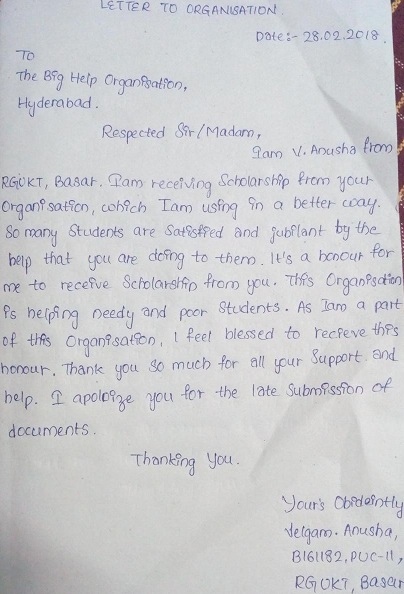 LETTER TO ORGANISATION.
Date:- 28.02.2018.
To
The Big Help Organisation,
Hyderabad.
Respected Sir/Madam,
Iam V. Anusha from
RGUKT, Basar. Iam receiving Scholarship from your
Organisation, which Iam using in a better way.
So many Students are Satisfied and jubilant by the
help that you are doing to them. It's a honour for
me to receive Scholarship from you. This Organisation
is helping needy and poor Students. As Iam a part
of this Organisation, I feel blessed to recieve this
honour. Thank you so much for all your Support and
help. I apologize you for the late Submission of
documents.
Thanking You.
Your's Obideintly
Velgam. Anusha,
B161182, PUC-II,
RGUKT, Basar